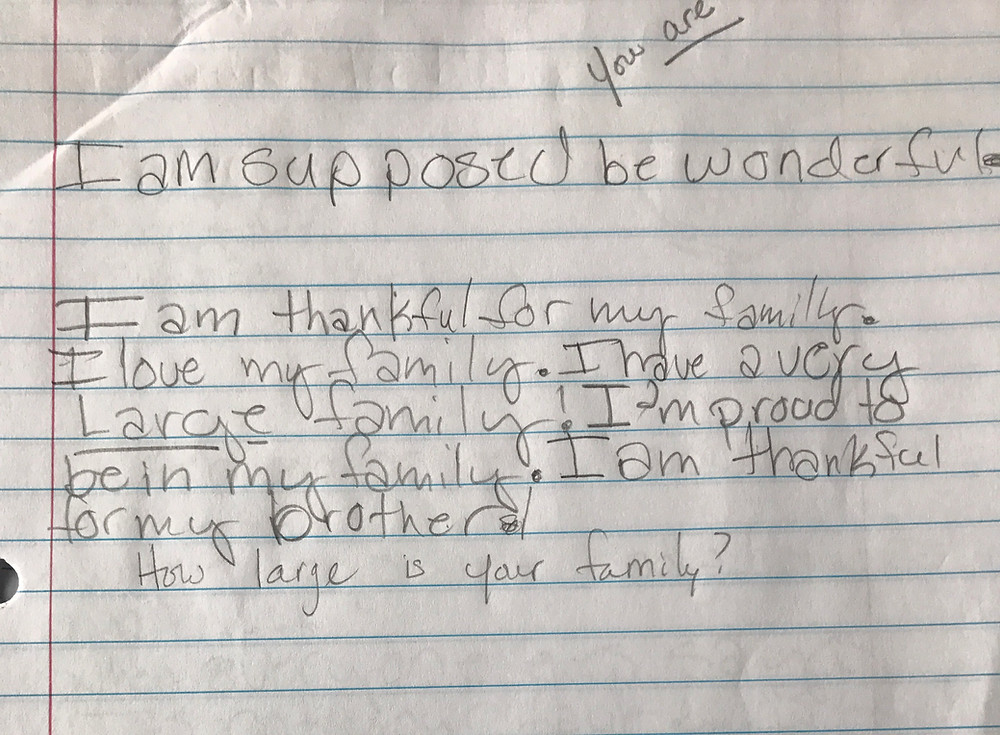 You are
I am supposed be wonderful
I am thankful for my familly.
I love my family. I have a very
Large family! I am proud to
be in my family. I am thankful
for my brothers!
How large is your family?